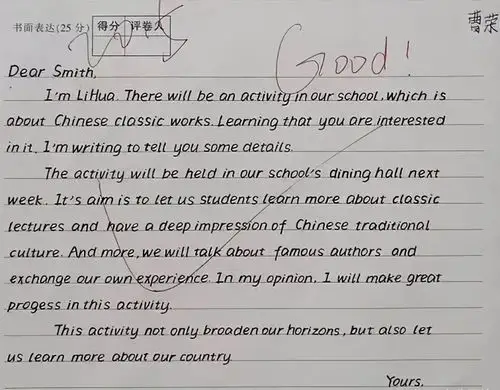 书面表达(25 分) 得分 评卷人
曹荣
Good!
Dear Smith,
I'm LiHua. There will be an activity in our school, which is
about Chinese classic works. Learning that you are interested
in it, I'm writing to tell you some details.
The activity will be held in our school's dining hall next
week. It's aim is to let us students learn more about classic
lectures and have a deep impression of Chinese traditional
culture. And more, we will talk about famous authors and
exchange our own experience. In my opinion, I will make great
progess in this activity.
This activity not only broaden our horizons, but also let
us learn more about our country.
Yours,